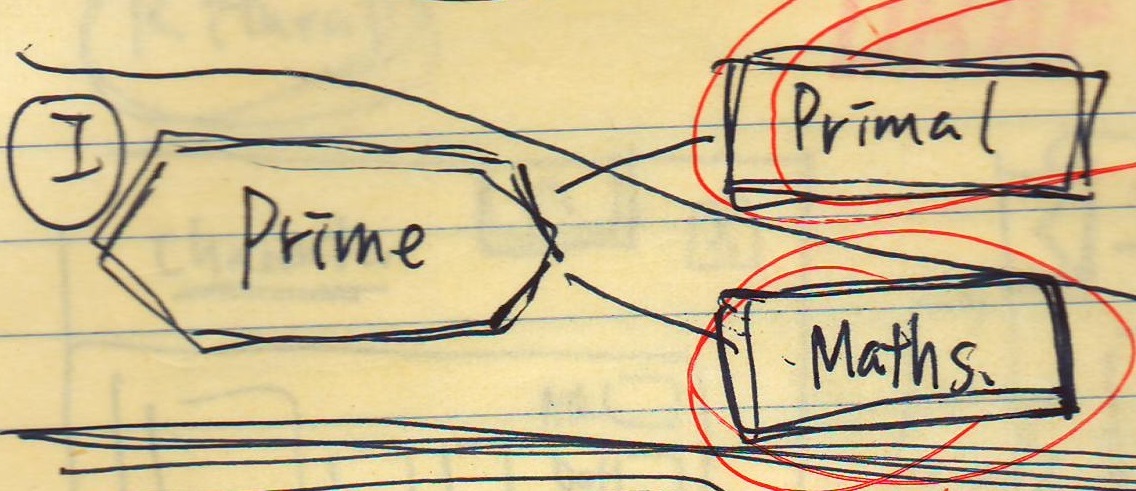 I
Prime
Primal
Maths.